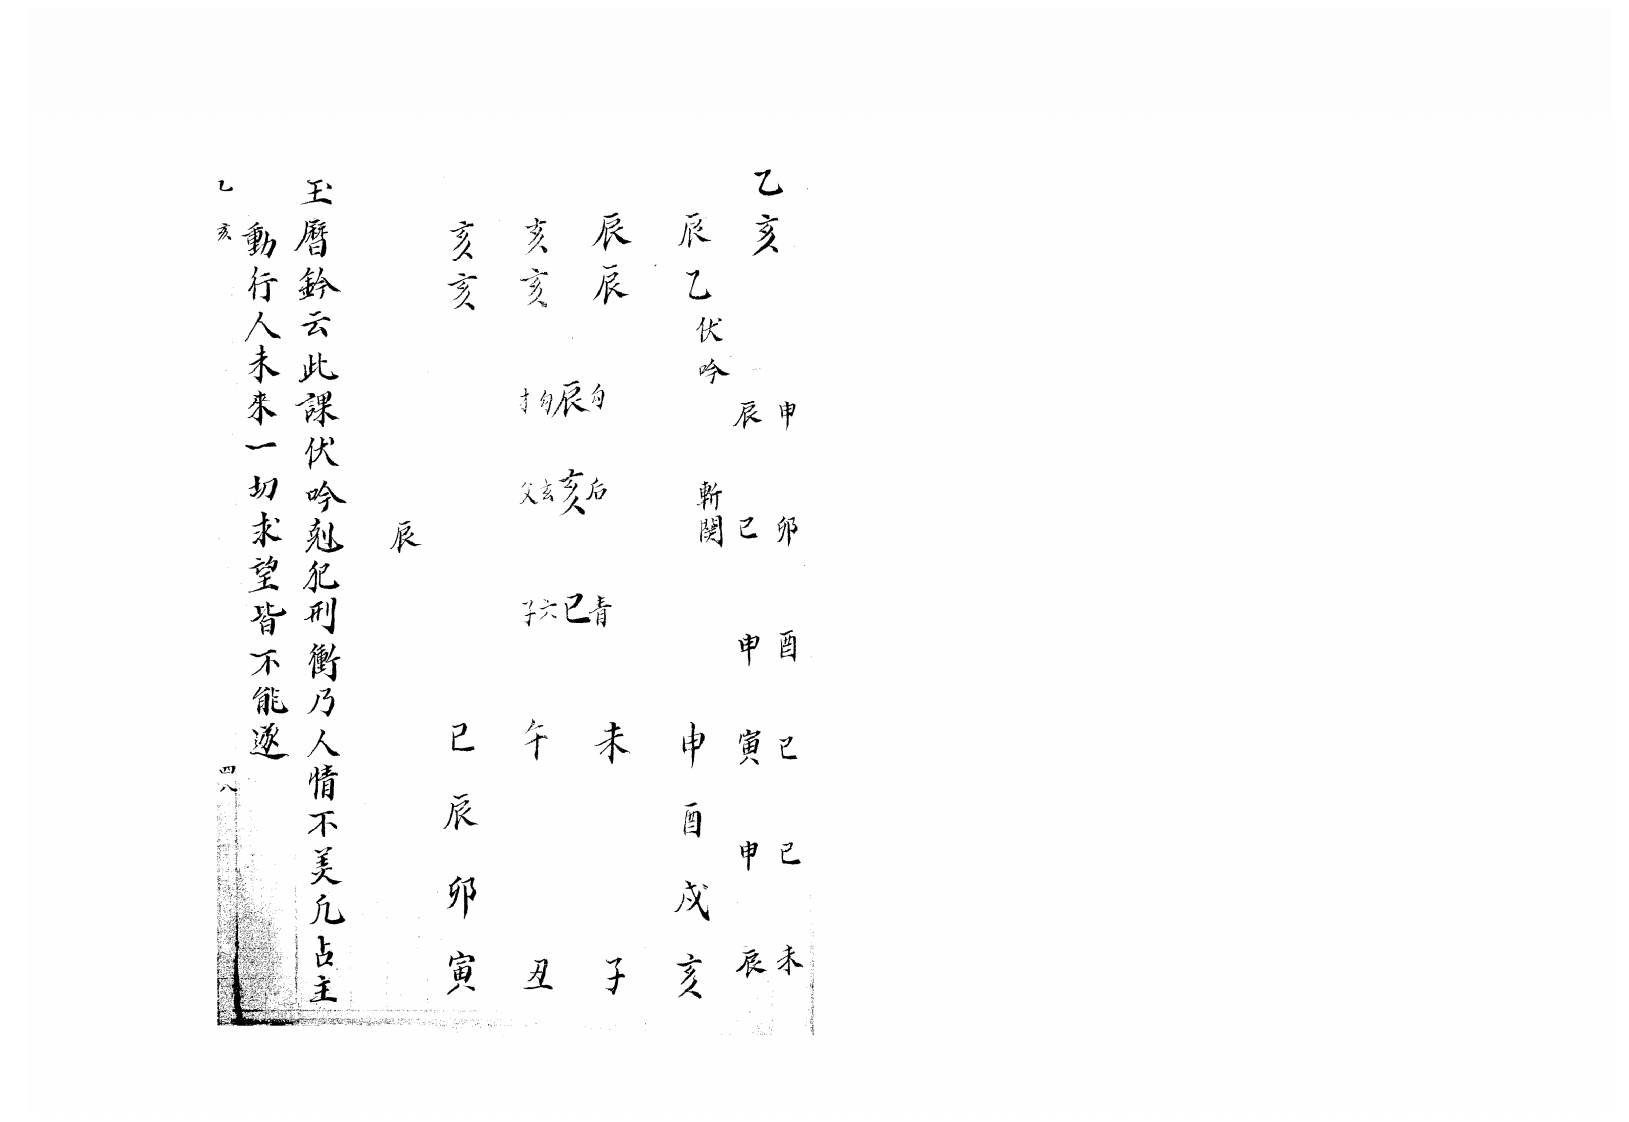 乙亥
申 卯 酉 巳 巳 未
辰 巳 申 寅 申 辰
伏吟 斬関
辰乙 申酉戌亥
辰辰 未 子
勾 后 青
辰 亥 巳
勾 玄 六
才 父 子
亥亥 午 丑
亥亥 巳辰卯寅
辰
玉曆鈐云此課伏吟剋犯刑衝乃人情不美凢占主
動行人未來一切求望皆不能遂
乙亥 四八